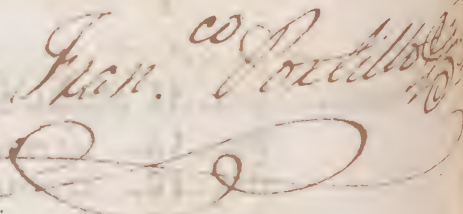 Fran.co Portillo